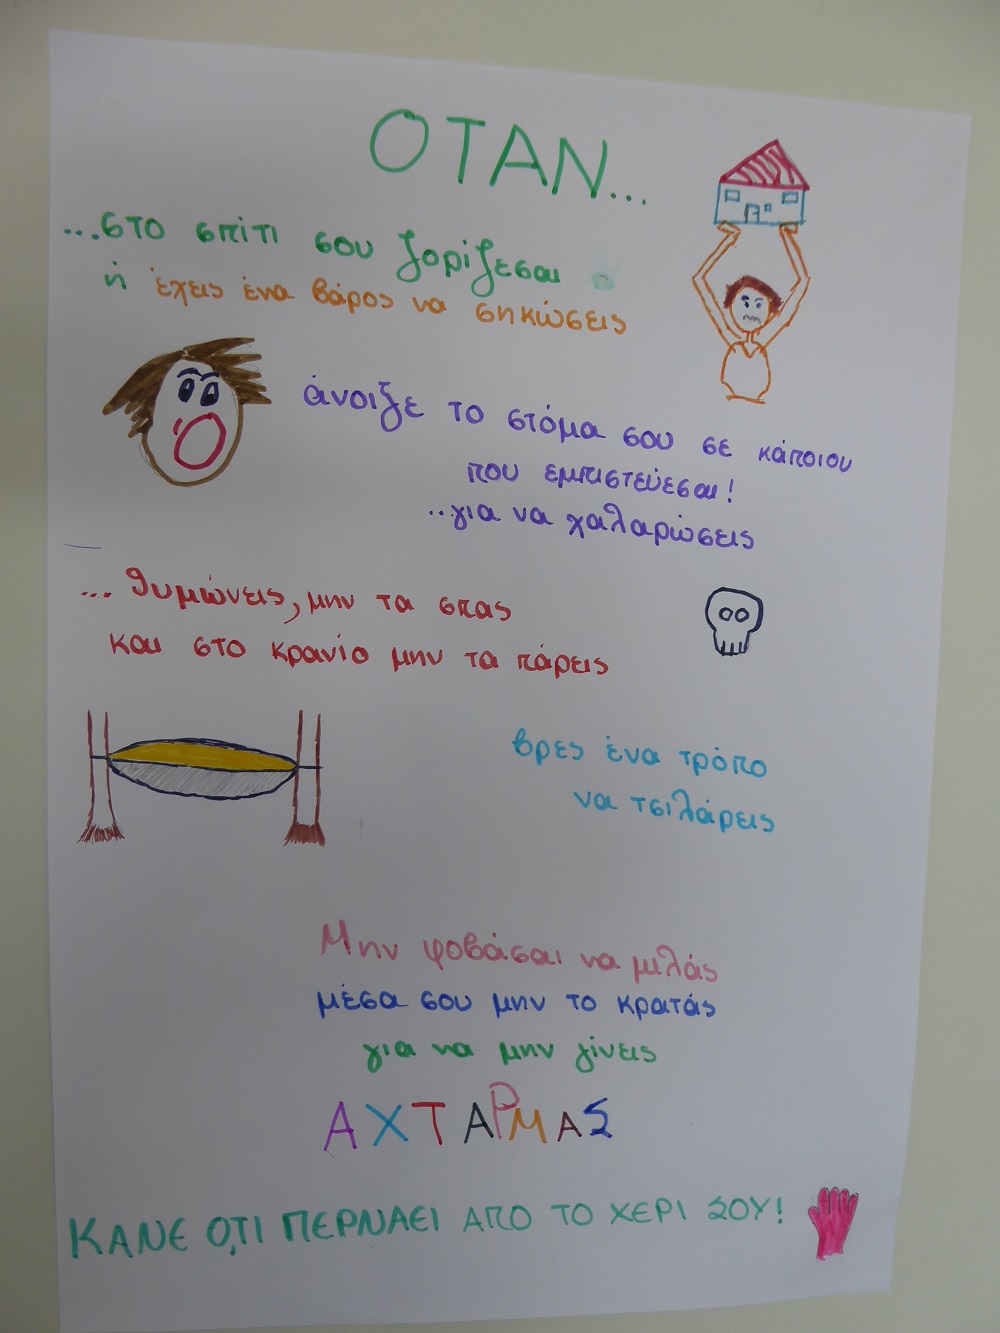 ΟΤΑΝ...
...στο σπίτι σου ζορίζεσαι
ή έχεις ένα βάρος να σηκώσεις
άνοιξε το στόμα σου σε κάποιον
που εμπιστεύεσαι!
..για να χαλαρώσεις
... θυμώνεις, μην τα σπας
και στο κρανίο μην τα πάρεις
βρες ένα τρόπο
να τσιλάρεις
Μην φοβάσαι να μιλάς
μέσα σου μην το κρατάς
για να μην γίνεις
ΑΧΤΑΡΜΑΣ
ΚΑΝΕ Ο,ΤΙ ΠΕΡΝΑΕΙ ΑΠΟ ΤΟ ΧΕΡΙ ΣΟΥ!